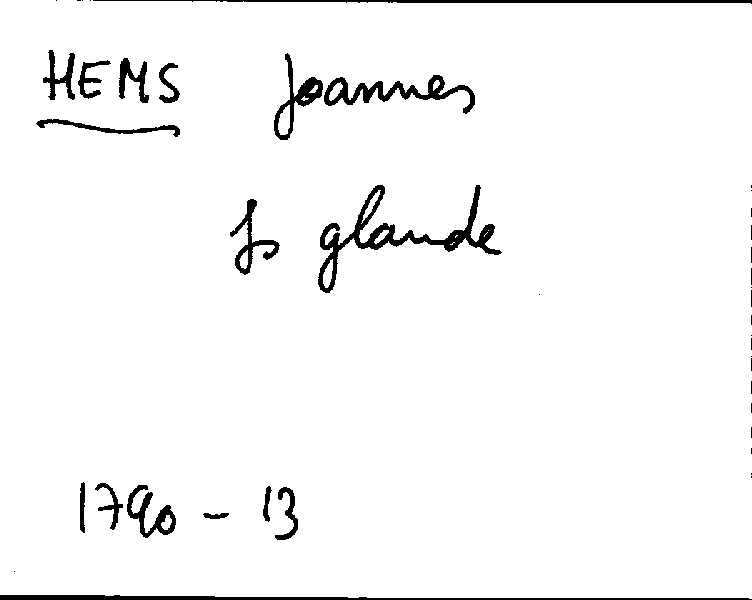 HEMS Joannes
fs glaude
1790 - 13